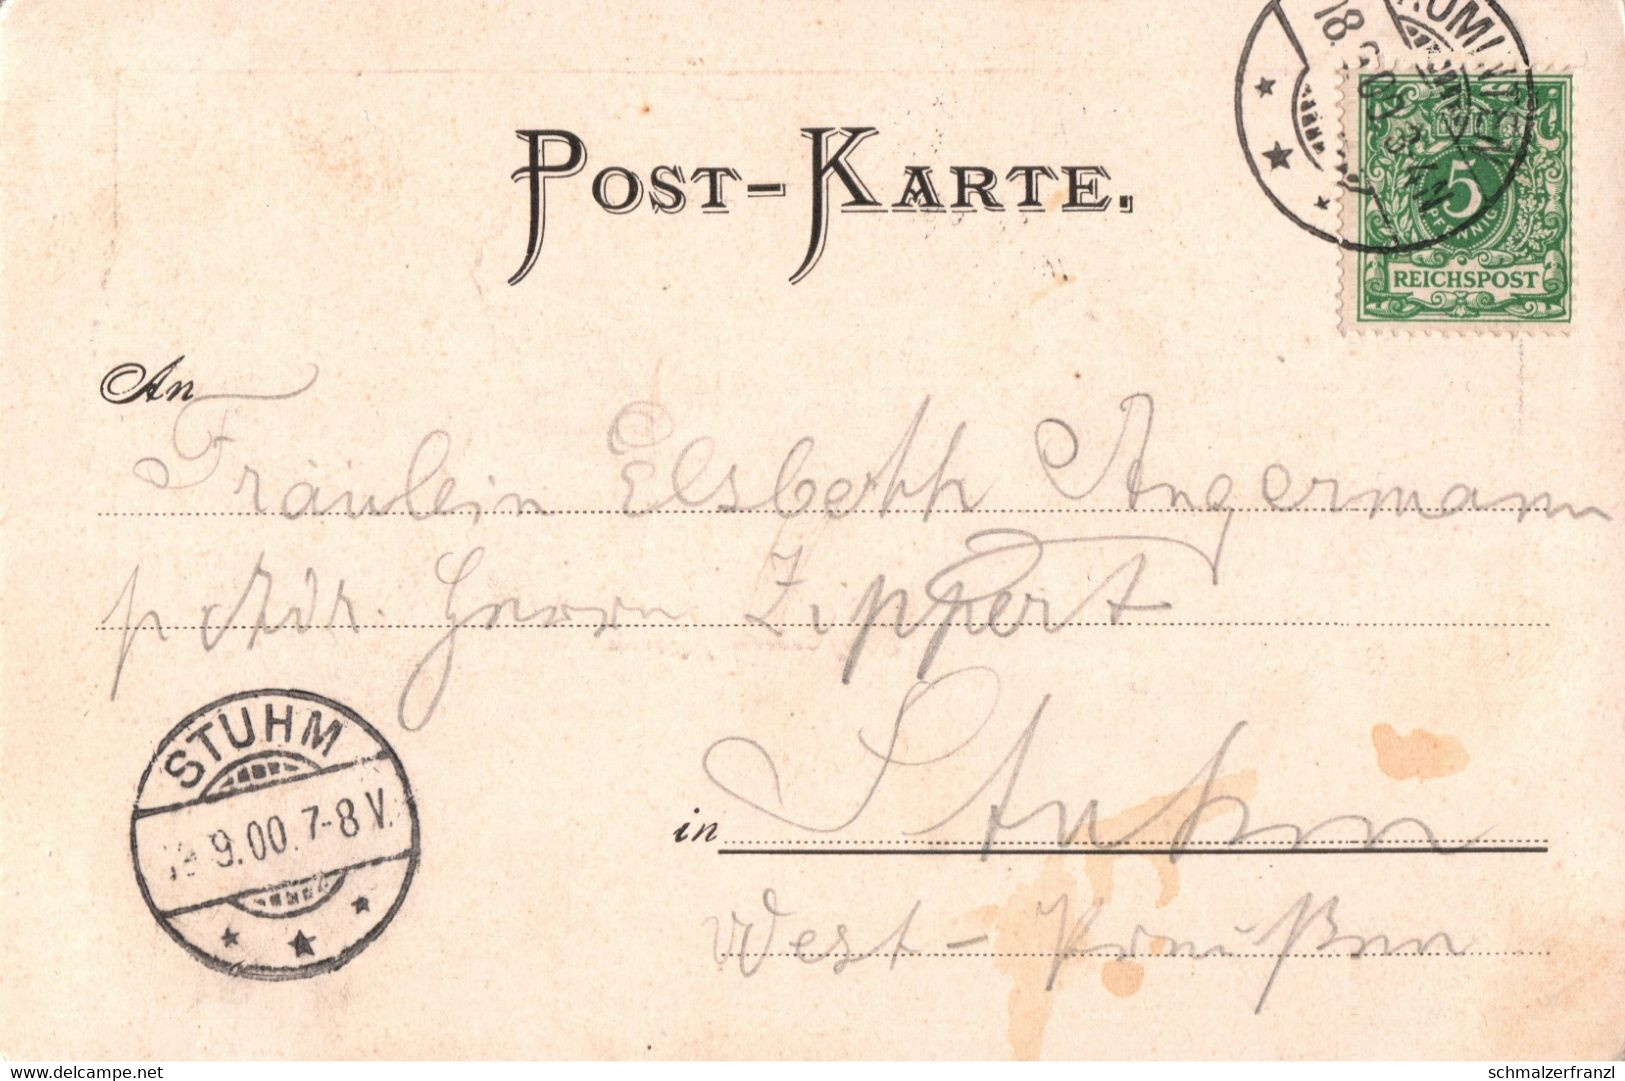 POST-KARTE.
18.9.00.
5
PFENNIG
REICHSPOST
An
Fräulein Elsbeth Angermann
p Adr. Herrn Zippert
STUHM
9.00. 7-8 V.
in Stuhm
West-Preußen
www.delcampe.net
schmalzerfranzl